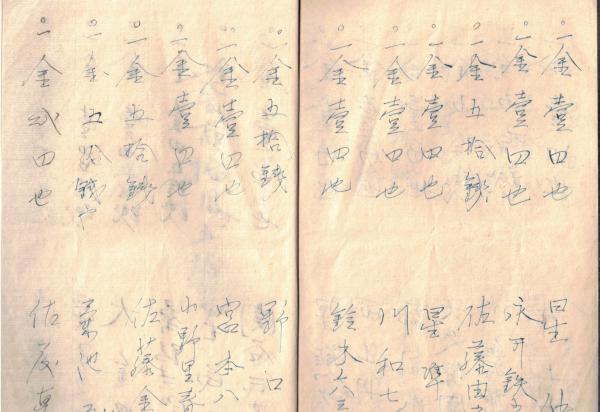 一金壹円也 星
一金壹円也
一金五拾銭 佐藤由
一金壹円也 星 準
一金壹円也 川和七
一金壹円也 鈴木六三
一金五拾銭 野口
一金壹円也 宮本八
一金壹円也 小野里春
一金五拾銭 佐藤金
一金五拾銭也 菊池
一金弐円也 佐友